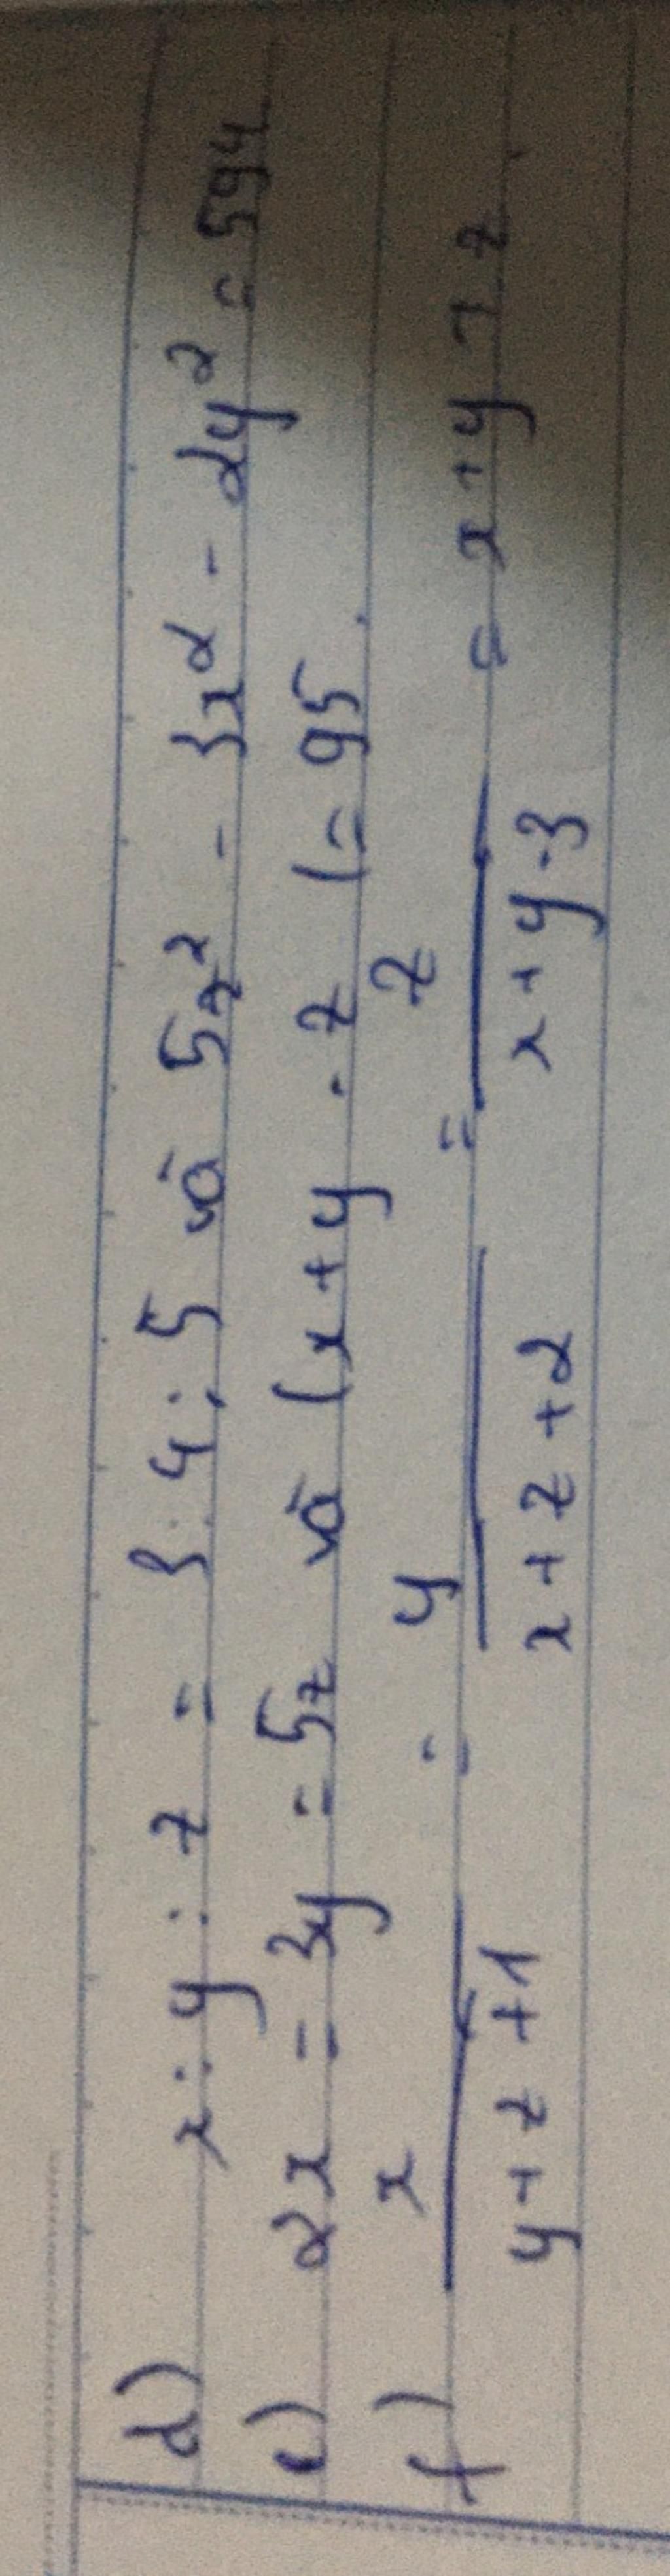 d) x : y : z = 3 : 4 : 5 và 5z² - 3x² - 2y² = 594
e) 2x = 3y = 5z và (x + y - z (= 95.
f) x/(y + z + 1) = y/(x + z + 2) = z/(x + y - 3) = x + y + z